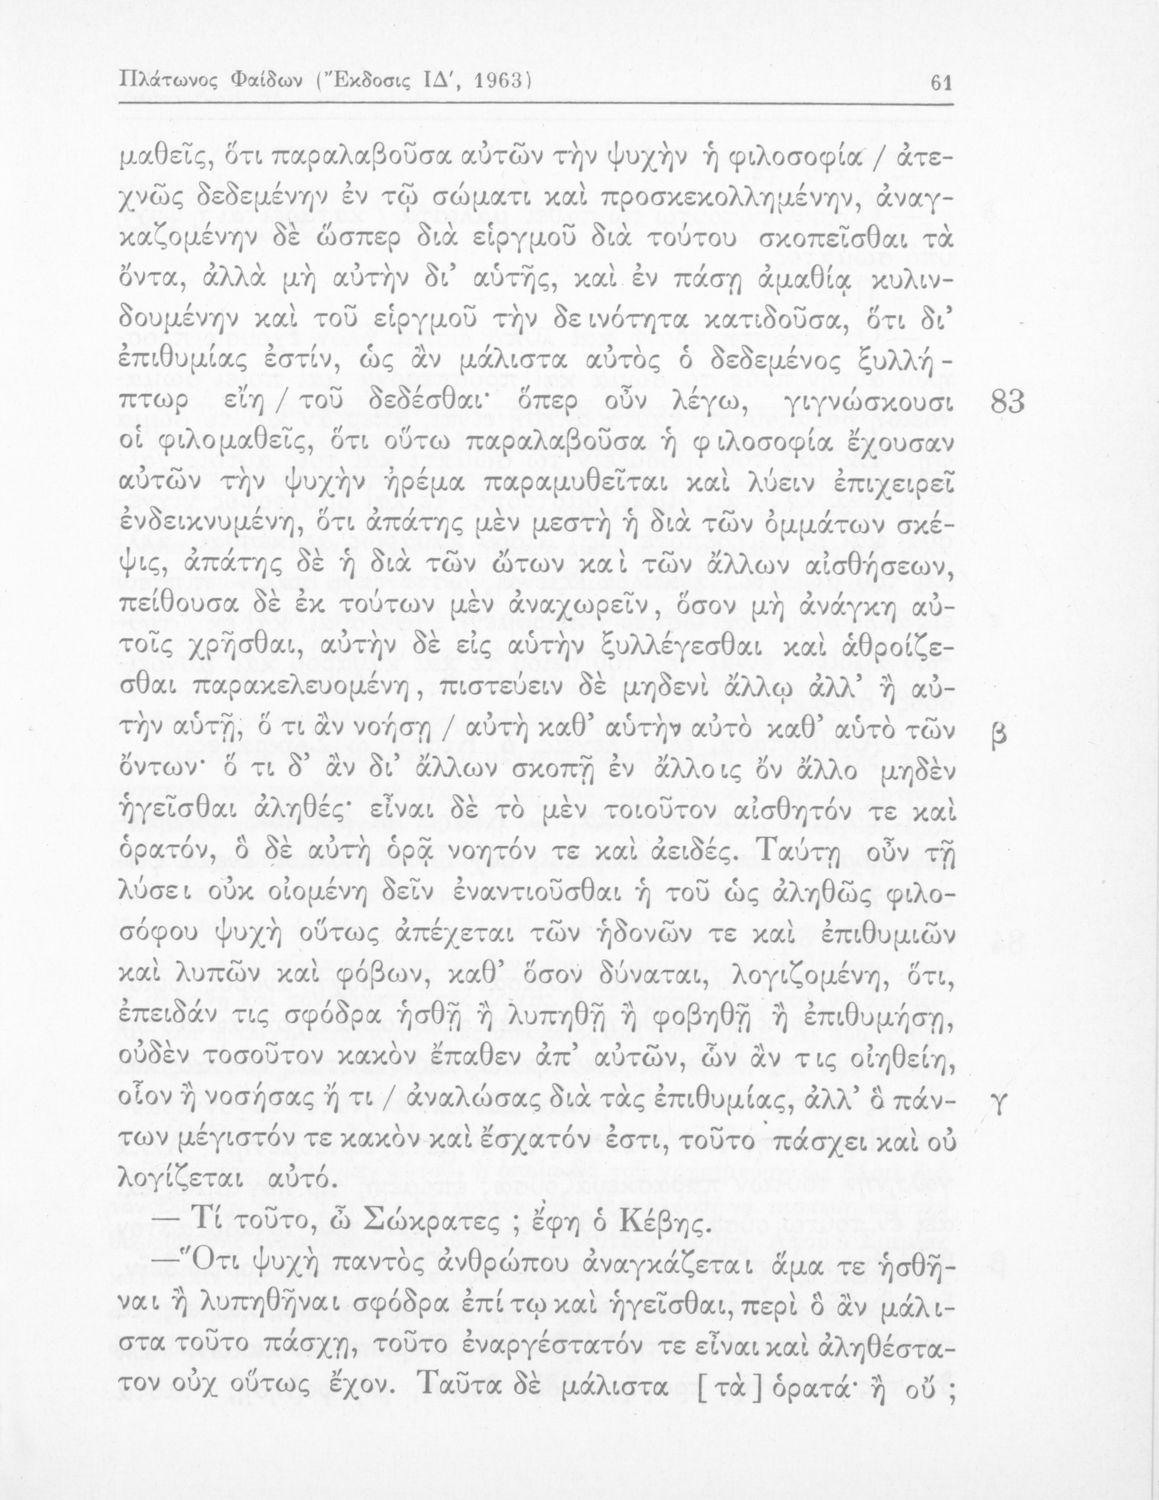 Πλάτωνος Φαίδων (Ἔκδοσις ΙΔ′, 1963) 61
μαθεῖς, ὅτι παραλαβοῦσα αὐτῶν τὴν ψυχὴν ἡ φιλοσοφία / ἀτε-
χνῶς δεδεμένην ἐν τῷ σώματι καὶ προσκεκολλημένην, ἀναγ-
καζομένην δὲ ὥσπερ διὰ εἱργμοῦ διὰ τούτου σκοπεῖσθαι τὰ
ὄντα, ἀλλὰ μὴ αὐτὴν δι’ αὑτῆς, καὶ ἐν πάσῃ ἀμαθίᾳ κυλιν-
δουμένην καὶ τοῦ εἱργμοῦ τὴν δεινότητα κατιδοῦσα, ὅτι δι’
ἐπιθυμίας ἐστίν, ὡς ἂν μάλιστα αὐτὸς ὁ δεδεμένος ξυλλή-
πτωρ εἴη / τοῦ δεδέσθαι· ὅπερ οὖν λέγω, γιγνώσκουσι 83
οἱ φιλομαθεῖς, ὅτι οὕτω παραλαβοῦσα ἡ φιλοσοφία ἔχουσαν
αὐτῶν τὴν ψυχὴν ἠρέμα παραμυθεῖται καὶ λύειν ἐπιχειρεῖ
ἐνδεικνυμένη, ὅτι ἀπάτης μὲν μεστὴ ἡ διὰ τῶν ὀμμάτων σκέ-
ψις, ἀπάτης δὲ ἡ διὰ τῶν ὤτων καὶ τῶν ἄλλων αἰσθήσεων,
πείθουσα δὲ ἐκ τούτων μὲν ἀναχωρεῖν, ὅσον μὴ ἀνάγκη αὐ-
τοῖς χρῆσθαι, αὐτὴν δὲ εἰς αὑτὴν ξυλλέγεσθαι καὶ ἁθροίζε-
σθαι παρακελευομένη, πιστεύειν δὲ μηδενὶ ἄλλῳ ἀλλ’ ἢ αὐ-
τὴν αὑτῇ, ὅ τι ἂν νοήσῃ / αὐτὴ καθ’ αὑτὴν αὐτὸ καθ’ αὑτὸ τῶν β
ὄντων· ὅ τι δ’ ἂν δι’ ἄλλων σκοπῇ ἐν ἄλλοις ὂν ἄλλο μηδὲν
ἡγεῖσθαι ἀληθές· εἶναι δὲ τὸ μὲν τοιοῦτον αἰσθητόν τε καὶ
ὁρατόν, ὃ δὲ αὐτὴ ὁρᾷ νοητόν τε καὶ ἀειδές. Ταύτῃ οὖν τῇ
λύσει οὐκ οἰομένη δεῖν ἐναντιοῦσθαι ἡ τοῦ ὡς ἀληθῶς φιλο-
σόφου ψυχὴ οὕτως ἀπέχεται τῶν ἡδονῶν τε καὶ ἐπιθυμιῶν
καὶ λυπῶν καὶ φόβων, καθ’ ὅσον δύναται, λογιζομένη, ὅτι,
ἐπειδάν τις σφόδρα ἡσθῇ ἢ λυπηθῇ ἢ φοβηθῇ ἢ ἐπιθυμήσῃ,
οὐδὲν τοσοῦτον κακὸν ἔπαθεν ἀπ’ αὐτῶν, ὧν ἄν τις οἰηθείη,
οἷον ἢ νοσήσας ἤ τι / ἀναλώσας διὰ τὰς ἐπιθυμίας, ἀλλ’ ὃ πάν- γ
των μέγιστόν τε κακὸν καὶ ἔσχατόν ἐστι, τοῦτο πάσχει καὶ οὐ
λογίζεται αὐτό.
— Τί τοῦτο, ὦ Σώκρατες ; ἔφη ὁ Κέβης.
—Ὅτι ψυχὴ παντὸς ἀνθρώπου ἀναγκάζεται ἅμα τε ἡσθῆ-
ναι ἢ λυπηθῆναι σφόδρα ἐπί τῳ καὶ ἡγεῖσθαι, περὶ ὃ ἂν μάλι-
στα τοῦτο πάσχῃ, τοῦτο ἐναργέστατόν τε εἶναι καὶ ἀληθέστα-
τον οὐχ οὕτως ἔχον. Ταῦτα δὲ μάλιστα [τὰ] ὁρατά· ἢ οὔ ;